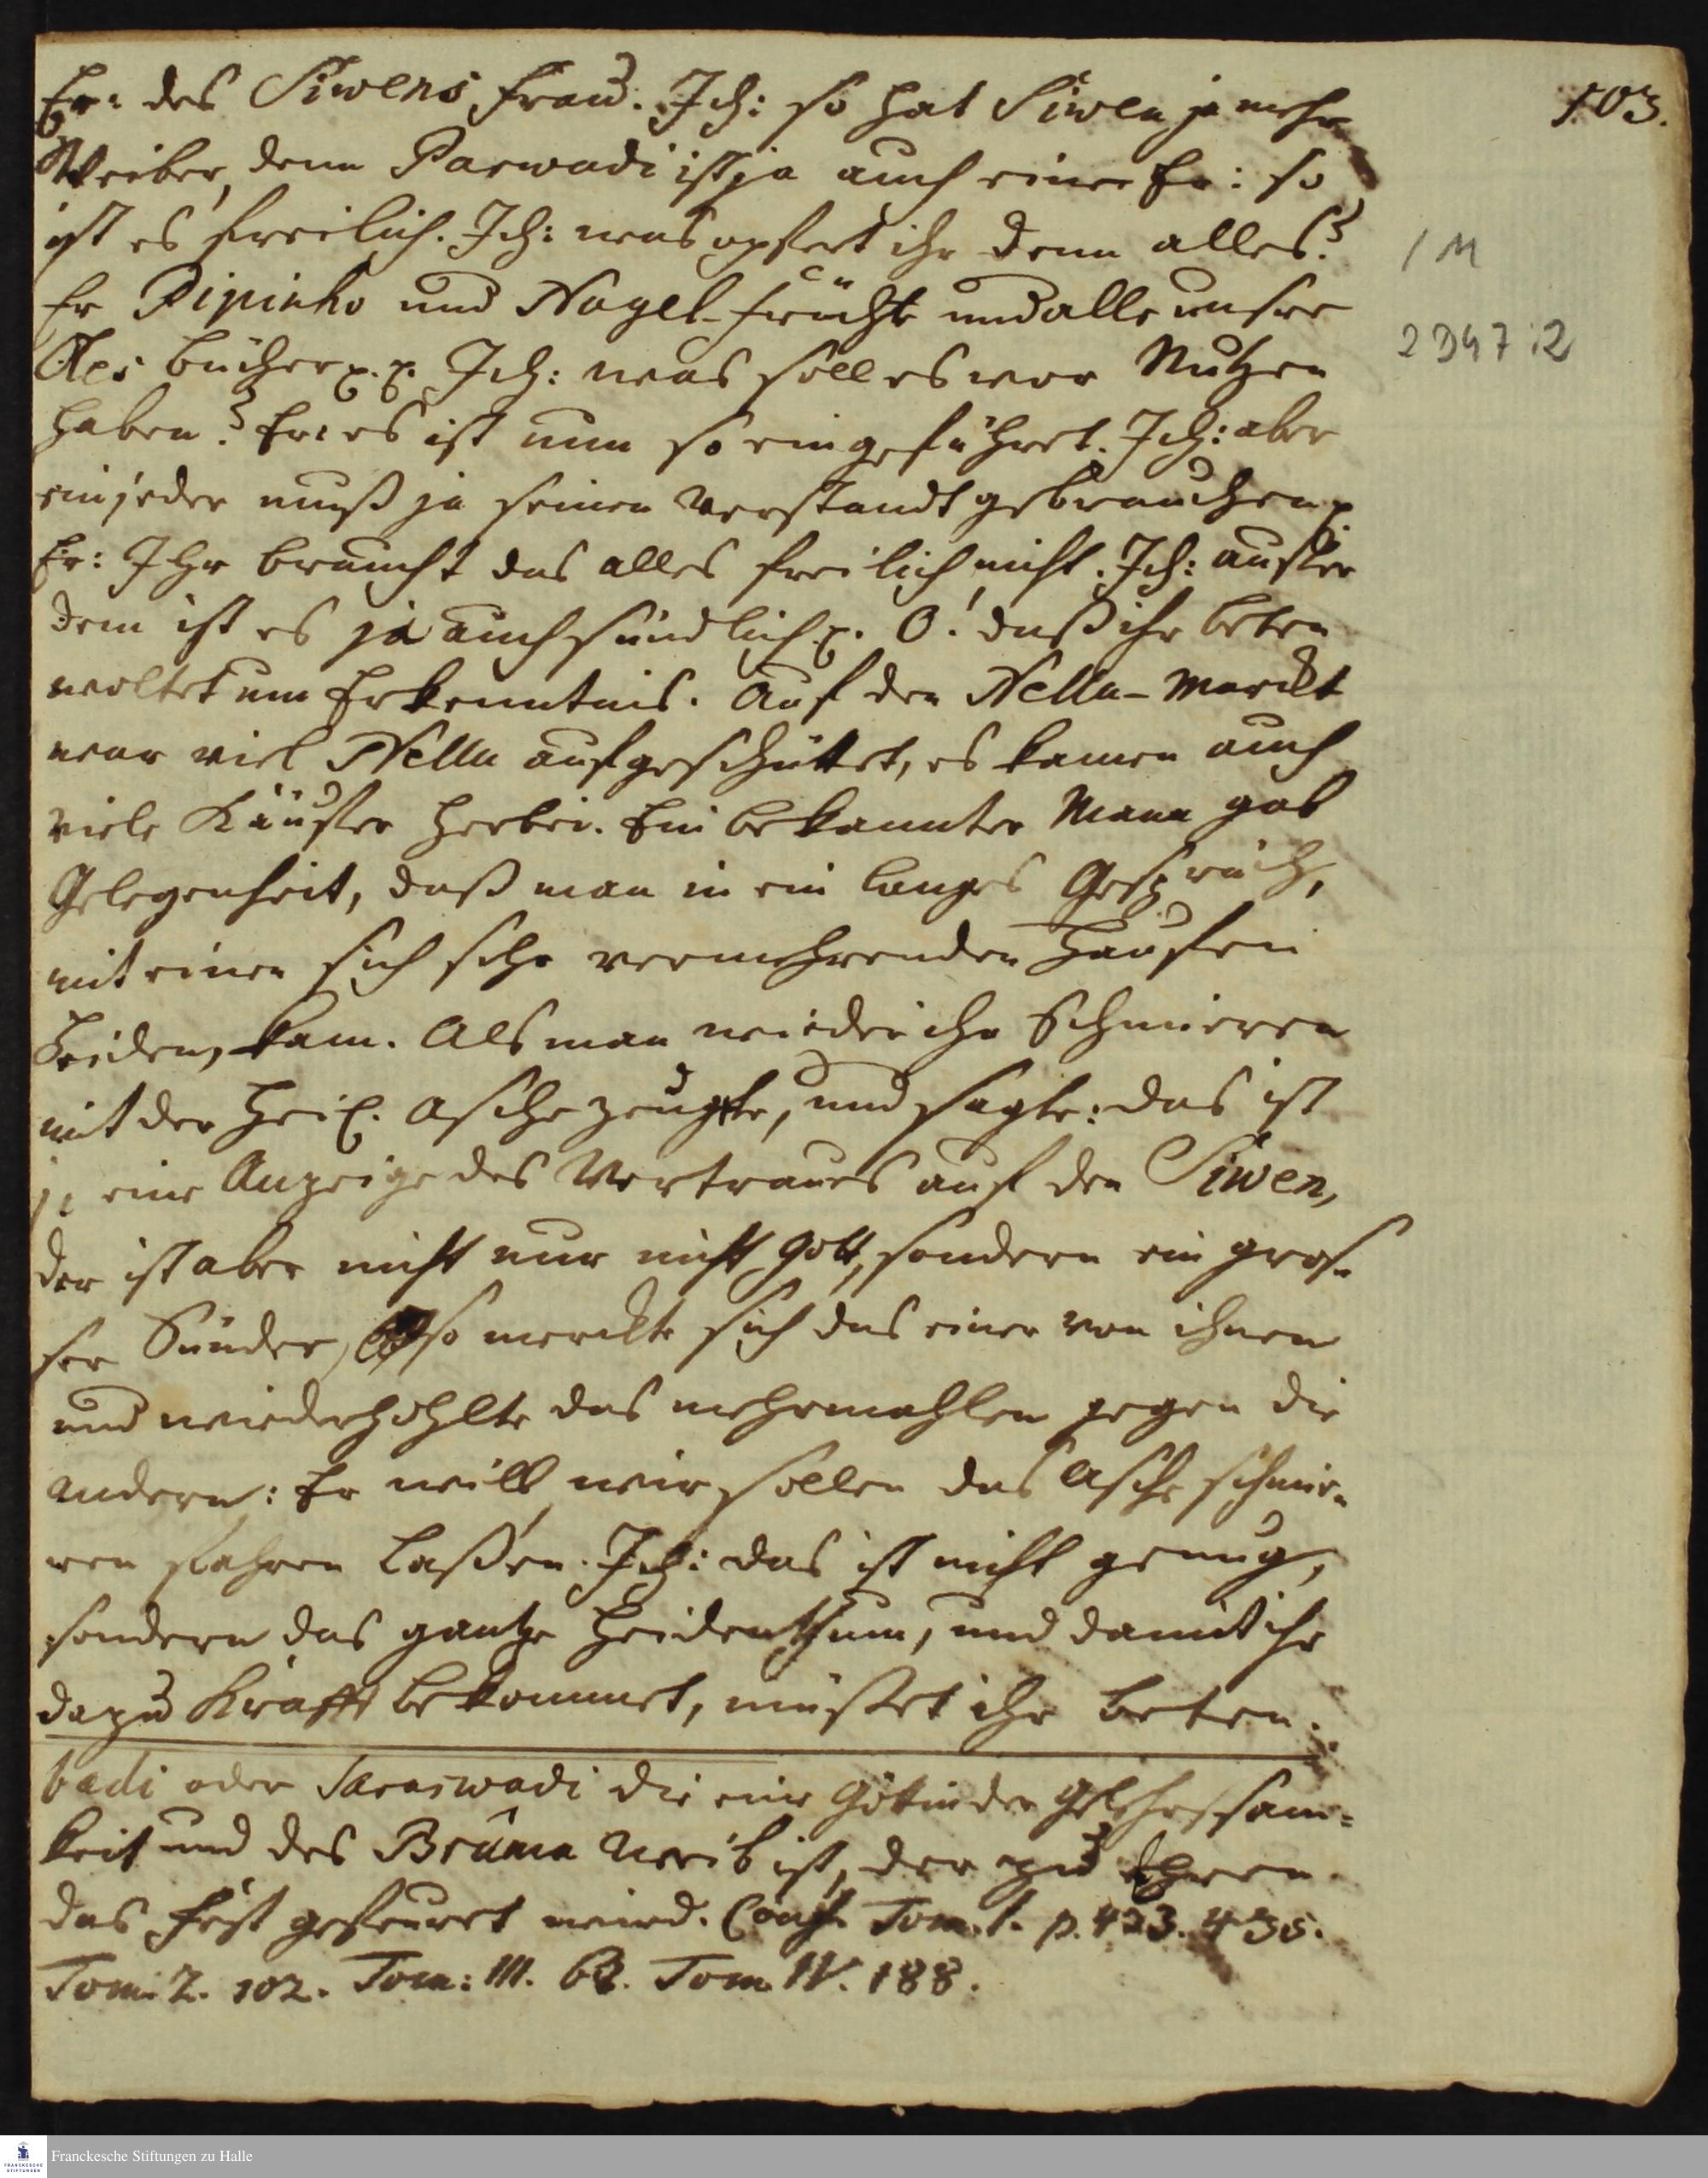 503.
Er: des Siwens Frau. Ich: so hat Siwen ja mehr
Weiber, denn Parwadi ist ja auch eine Er: so
ist es freilich. Ich: was opfert ihr denn alles?
Er Pipinho und Nagel-früchte und alle unsere
Oles bücher p. p. Ich: was soll es vor Nutzen
haben? Er: es ist nun so eingeführet. Ich: aber
ein jeder muß ja seinen Verstandt gebrauchen p.
Er: Ihr braucht das alles freilich nicht. Ich: ausser
dem ist es ja auch sündlich p. O! daß ihr beten
woltet um Erkenntnis. Auf den Nella-Marckt
war viel Nella aufgeschüttet, es kamen auch
viele Käuffer herbei. Ein bekannter Mann gab
Gelegenheit, daß man in ein langes Gespräch,
mit einen sich sehr vermehrenden Hauffen
Heiden, kam. Als man wieder ihr Schmieren
mit der heil. Asche zeugte, und sagte: das ist
ja eine Anzeige des Vertraues auf den Siwen,
der ist aber nicht nur nicht Gott, sondern ein gros-
ser Sünder, so merckte sich das einer von ihnen
und wiederhohlte das mehrmahlen gegen die
andern: Er will wir sollen das Asche schmie-
ren fahren laßen. Ich: das ist nicht genug,
sondern das gantze Heidenthum, und damit ihr
dazu Krafft bekommet, müsset ihr beten.
badi oder Saraswadi die eine Göttin der Gelehrsam-
keit und des Bruma Weib ist, der zu Ehren
das Fest gefeuret wird. Conf. Tom. 1. p. 423. 435.
Tom. 2. 102. Tom: III. 62. Tom. IV. 188.
1 M
2 D47:2
Franckesche Stiftungen zu Halle